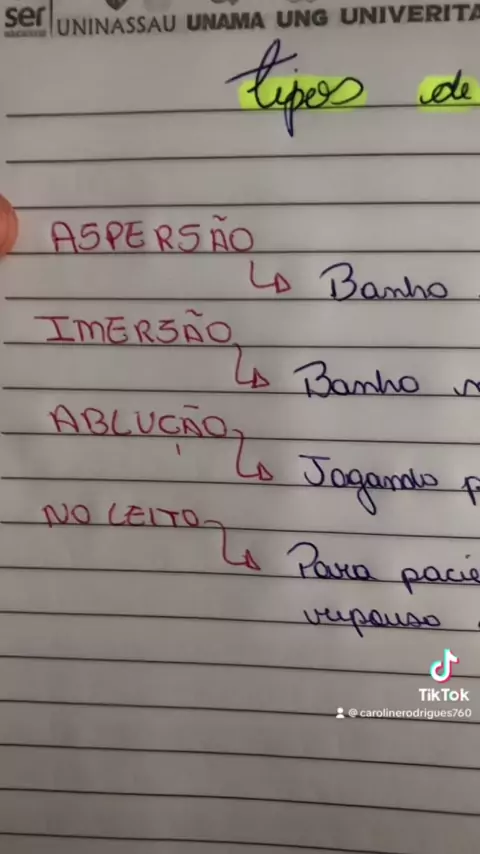 ser
UNINASSAU UNAMA UNG UNIVERITA
tipos de
ASPERSÃO
Banho
IMERSÃO
Banho
ABLUÇÃO
Jogando
NO LEITO
Para pacie
repouso
TikTok
@carolinerodrigues760